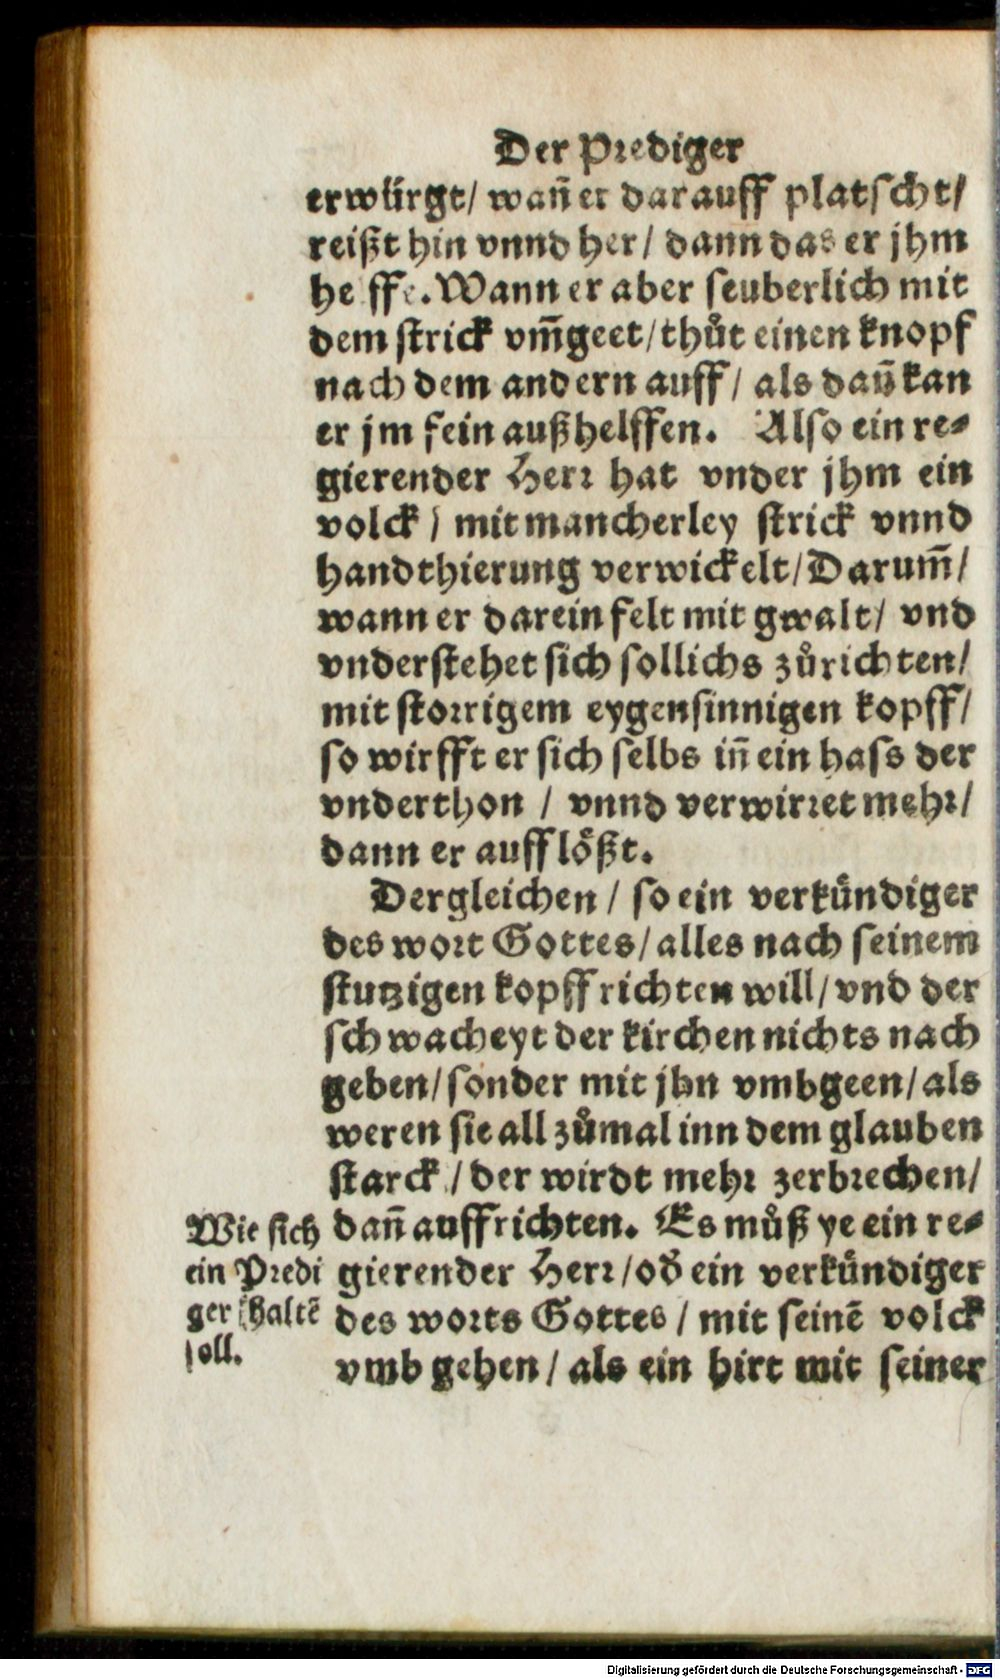 Der Prediger
erwürgt/ wañ er darauff platscht/
reißt hin vnnd her/ dann das er jhm
helffe. Wann er aber seuberlich mit
dem strick vm̃geet/thůt einen knopf
nach dem andern auff/ als dañ kan
er jm fein außhelffen. Also ein re-
gierender Herr hat vnder jhm ein
volck/ mit mancherley strick vnnd
handthierung verwickelt/Darum̃/
wann er darein felt mit gwalt/ vnd
vnderstehet sich sollichs zůrichten/
mit storrigem eygensinnigen kopff/
so wirfft er sich selbs iñ ein hass der
vnderthon / vnnd verwirret mehr/
dann er aufflößt.
Dergleichen / so ein verkündiger
des wort Gottes/alles nach seinem
stutzigen kopff richten will/vnd der
schwacheyt der kirchen nichts nach
geben/sonder mit jhn vmbgeen/als
weren sie all zůmal inn dem glauben
starck/der wirdt mehr zerbrechen/
dañ auffrichten. Es můß ye ein re-
gierender Herr/oď ein verkündiger
des worts Gottes / mit seinẽ volck
vmb gehen/ als ein hirt mit seiner
Wie sich
ein Predi
ger haltẽ
soll.
Digitalisierung gefördert durch die Deutsche Forschungsgemeinschaft - DFG